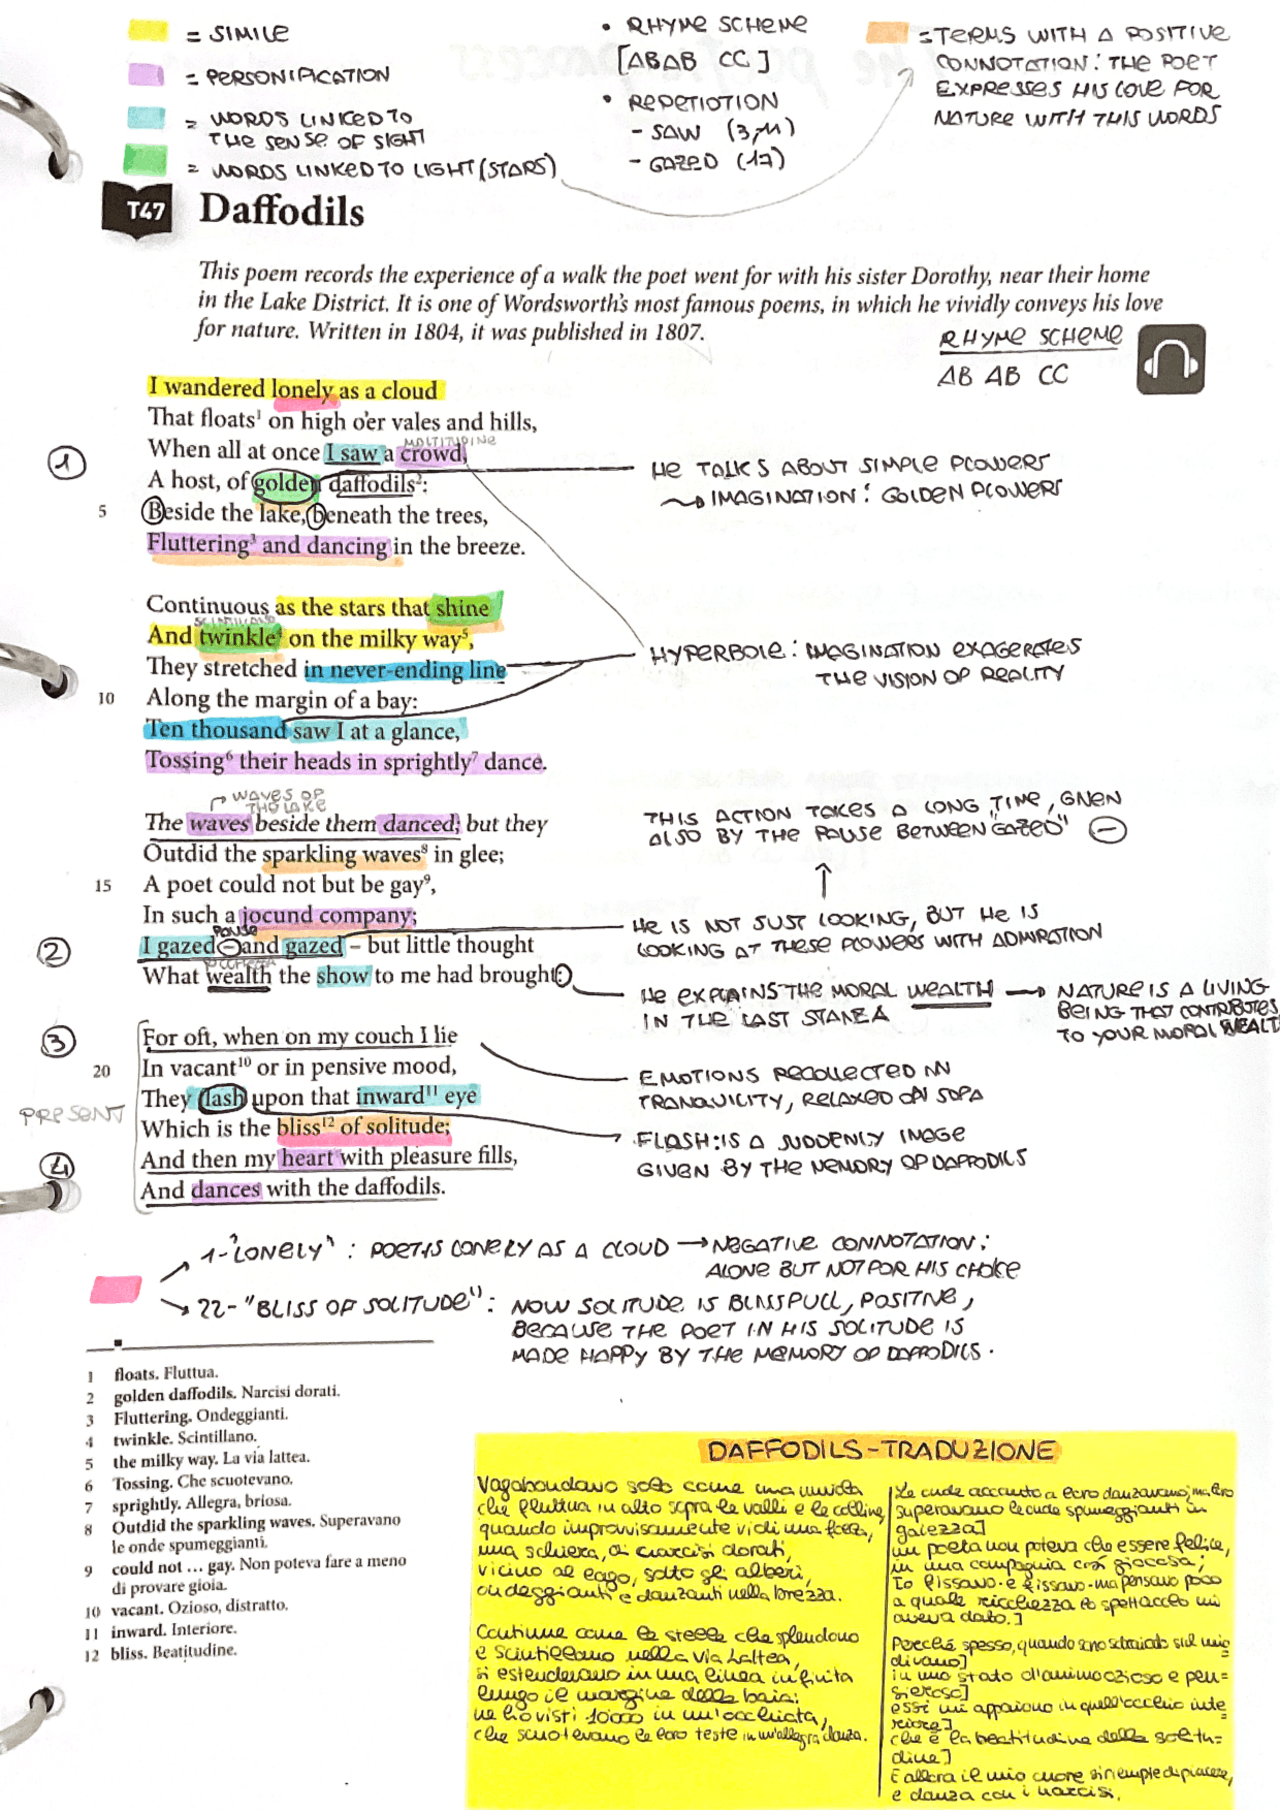 = SIMILE
= PERSONIFICATION
= WORDS LINKED TO
THE SENSE OF SIGHT
= WORDS LINKED TO LIGHT (STARS)
• RHYME SCHEME
[ABAB CC]
• REPETIOTION
- SAW (3,11)
- GAZED (17)
= TERMS WITH A POSITIVE
CONNOTATION: THE POET
EXPRESSES HIS LOVE FOR
NATURE WITH THIS WORDS
T47 Daffodils
This poem records the experience of a walk the poet went for with his sister Dorothy, near their home
in the Lake District. It is one of Wordsworth's most famous poems, in which he vividly conveys his love
for nature. Written in 1804, it was published in 1807.
RHYME SCHEME
AB AB CC
I wandered lonely as a cloud
That floats1 on high o'er vales and hills,
When all at once I saw a crowd,
MOLTITUDINE
1
A host, of golden daffodils2:
5 Beside the lake, beneath the trees,
Fluttering3 and dancing in the breeze.
HE TALKS ABOUT SIMPLE FLOWERS
→ IMAGINATION: GOLDEN FLOWERS
Continuous as the stars that shine
SCINTILLANO
And twinkle4 on the milky way5,
They stretched in never-ending line
10 Along the margin of a bay:
Ten thousand saw I at a glance,
Tossing6 their heads in sprightly7 dance.
HYPERBOLE: IMAGINATION EXAGERATES
THE VISION OF REALITY
WAVES OF
THE LAKE
The waves beside them danced; but they
Outdid the sparkling waves8 in glee;
15 A poet could not but be gay9,
In such a jocund company;
PAUSE
2
I gazed – and gazed – but little thought
What wealth the show to me had brought:
THIS ACTION TAKES A LONG TIME, GIVEN
ALSO BY THE PAUSE BETWEEN "GAZED" –
HE IS NOT JUST LOOKING, BUT HE IS
LOOKING AT THESE FLOWERS WITH ADMIRATION
HE EXPLAINS THE MORAL WEALTH → NATURE IS A LIVING
IN THE LAST STANZA
BEING THAT CONTRIBUTES
TO YOUR MORAL WEALTH
3
For oft, when on my couch I lie
20 In vacant10 or in pensive mood,
They flash upon that inward11 eye
PRESENT
Which is the bliss12 of solitude;
4
And then my heart with pleasure fills,
And dances with the daffodils.
EMOTIONS RECOLLECTED IN
TRANQUILITY, RELAXED ON SOFA
FLASH: IS A SUDDENLY IMAGE
GIVEN BY THE MEMORY OF DAFFODILS
1-"LONELY": POET IS LONELY AS A CLOUD → NEGATIVE CONNOTATION:
ALONE BUT NOT FOR HIS CHOICE
22-"BLISS OF SOLITUDE": NOW SOLITUDE IS BLISSFULL, POSITIVE,
BECAUSE THE POET IN HIS SOLITUDE IS
MADE HAPPY BY THE MEMORY OF DAFFODILS.
1 floats. Fluttua.
2 golden daffodils. Narcisi dorati.
3 Fluttering. Ondeggianti.
4 twinkle. Scintillano.
5 the milky way. La via lattea.
6 Tossing. Che scuotevano.
7 sprightly. Allegra, briosa.
8 Outdid the sparkling waves. Superavano
le onde spumeggianti.
9 could not ... gay. Non poteva fare a meno
di provare gioia.
10 vacant. Ozioso, distratto.
11 inward. Interiore.
12 bliss. Beatitudine.
DAFFODILS-TRADUZIONE
Vagabondavo solo come una nuvola
che fluttua in alto sopra le valli e le colline,
quando improvvisamente vidi una folla,
una schiera, di narcisi dorati,
vicino al lago, sotto gli alberi,
ondeggianti e danzanti nella brezza.
Continue come le stelle che splendono
e scintillano nella via Lattea,
si estendevano in una linea infinita
lungo il margine della baia:
ne ho visti 10000 in un'occhiata,
che scuotevano le loro teste in un'allegra danza.
Le onde accanto a loro danzavano, ma loro
superavano le onde spumeggianti in
gaiezza]
un poeta non poteva che essere felice,
in una compagnia così giocosa;
Io fissavo-e fissavo-ma pensavo poco
a quale ricchezza lo spettacolo mi
aveva dato.]
Perché spesso, quando sono sdraiato sul mio
divano]
in uno stato d'animo ozioso e pen=
sieroso]
essi mi appaiono in quell'occhio inte
riore]
che è la beatitudine della solitu-
dine]
E allora il mio cuore si riempie di piacere,
e danza con i narcisi.